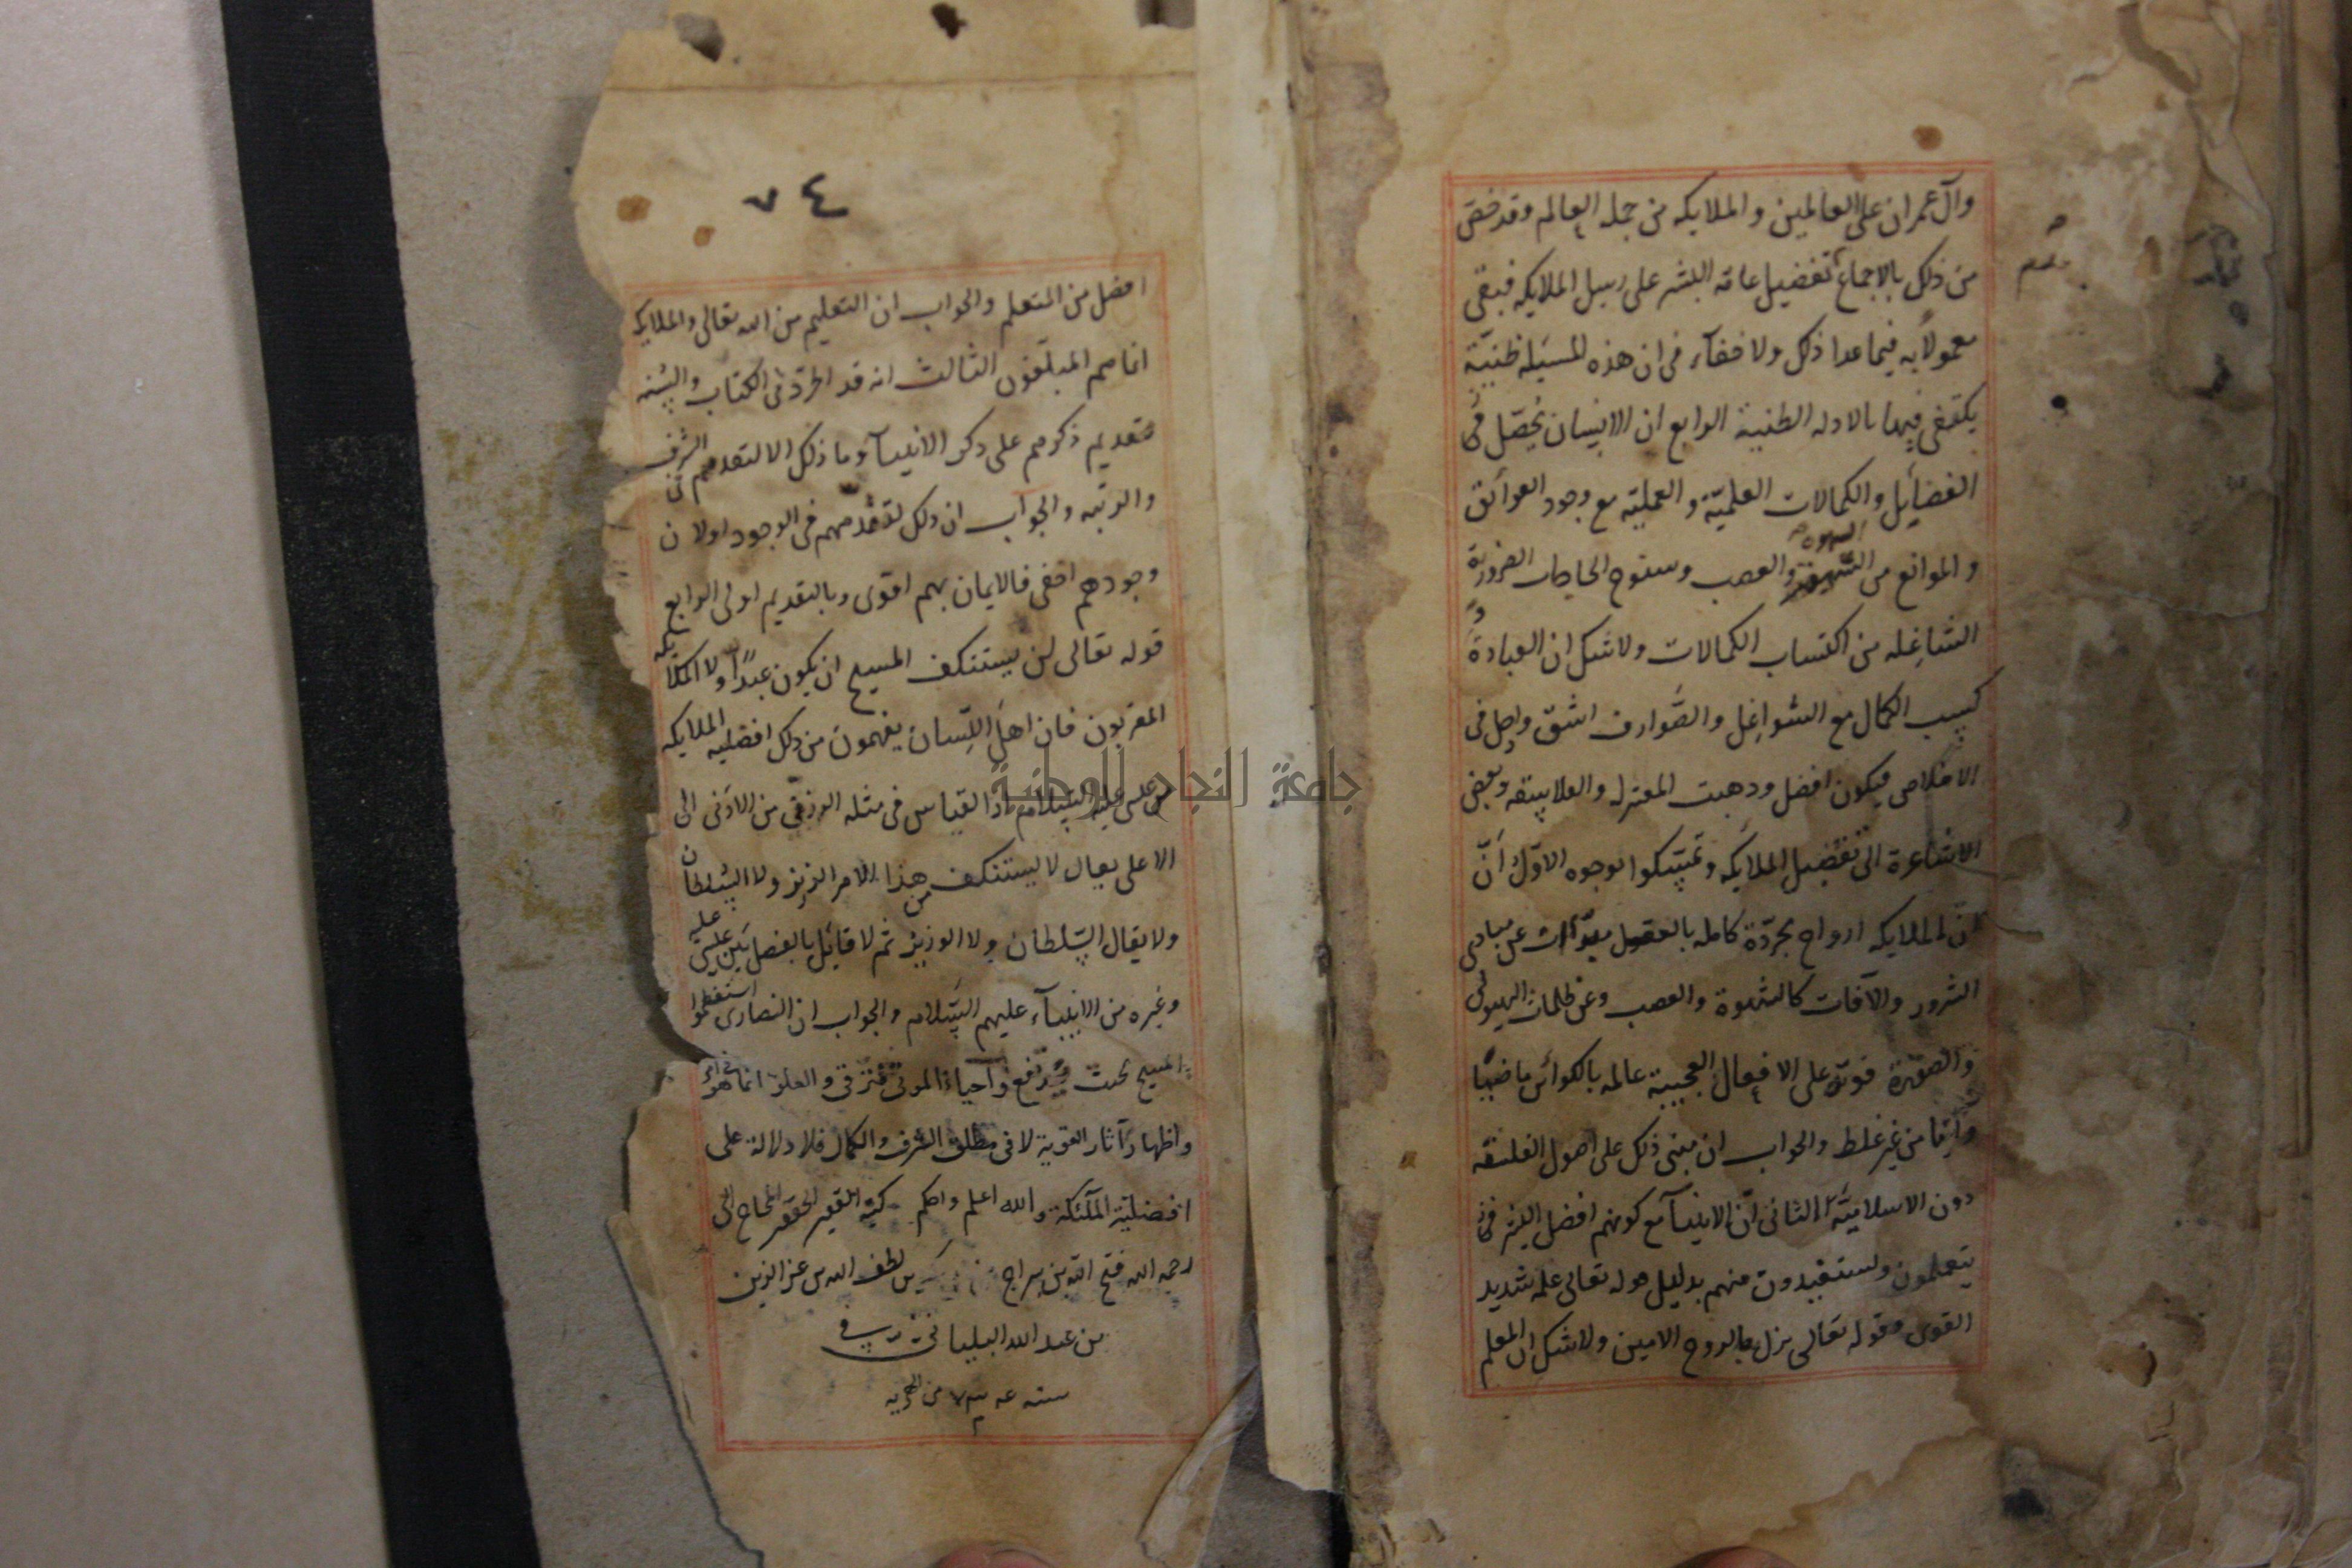 وآل عمران على العالمين والملايكه من جمله العالم وقد خص
من ذلك بالاجماع تفضيل عامه البشر على رسل الملايكه فبقى
معمولاً به فيما عدا ذلك ولا خفآء فى ان هذه المسئله ظنيّة
يكتفى فيها بالادله الظنية الرابع ان الانسان يُحصّل
الفضايل والكمالات العلميّة والعمليّه مع وجود العوائق
والموانع من الشهوة والغضب وسنوح الحاجات الضرورية
الشاغله من اكتساب الكمالات ولا شك ان العبادة و
كسب الكمال مع الشواغل والصَّوارف اشقّ وادخل فى
الاخلاص فيكون افضل وذهبت المعتزله والفلاسفه وبعض
الاشاعرة الى تفضيل الملايكه وتمسّكوا بوجوه الاوّل انّ
انّ الملايكه ارواح مجرّدة كامله بالعقول مبرّآت عن مبادى
الشرور والآفات كالشهوة والغضب وعن ظلمات الهيولى
والصورة قويّة على الافعال العجيبة عالمه بالكوائن ماضيها
وآتيها من غير غلط والجواب ان مبنى ذلك على اصول الفلسفه
دون الاسلاميّة الثانى انّ الانبيآء مع كونهم افضل البشر
يتعلمون ويستفيدون منهم بدليل قوله تعالى علمه شديد
القوى وقوله تعالى نزل به الروح الامين ولا شك ان المعلم
٧٤
افضل من المتعلم والجواب ان التعليم من الله تعالى والملايكه
انما هم المبلّغون الثالث انه قد اطرد فى الكتاب والسنه
تقديم ذكرهم على ذكر الانبيآء وما ذلك الا لتقدمهم فى الشرف
والرتبه والجواب ان ذلك لتقدمهم فى الوجود او لان
وجودهم اخفى فالايمان بهم اقوى وبالتقديم اولى الرابع
قوله تعالى لن يستنكف المسيح ان يكون عبداً ولا الملايكه
المقربون فان اهل اللّسان يفهمون من ذلك افضليه الملايكه
من عيسى عليه السّلام اذ القياس فى مثله الترقى من الادنى الى
الاعلى يقال لا يستنكف من هذا الامر الوزير ولا السّلطان
ولا يقال السّلطان ولا الوزير ثم لا قايل بالفصل بين عيسى عليه
وغيره من الانبيآء عليهم السّلام والجواب ان النصارى استعظموا
المسيح بحيث يترفع واحياء الموتى فترقى والعلو انما هو فى امر
واظهار آثار القوية لا فى مطلق الشرف والكمال فلا دلالة على
افضليّة الملٓئكة والله اعلم واحكم كتبه الفقير الحقير المحتاج الى
رحمة الله فتح الله بن سراج بن لطف الله بن عز الدين
بن عبد الله البليانى
سنه من الهجريه
جامعة النجاح الوطنية